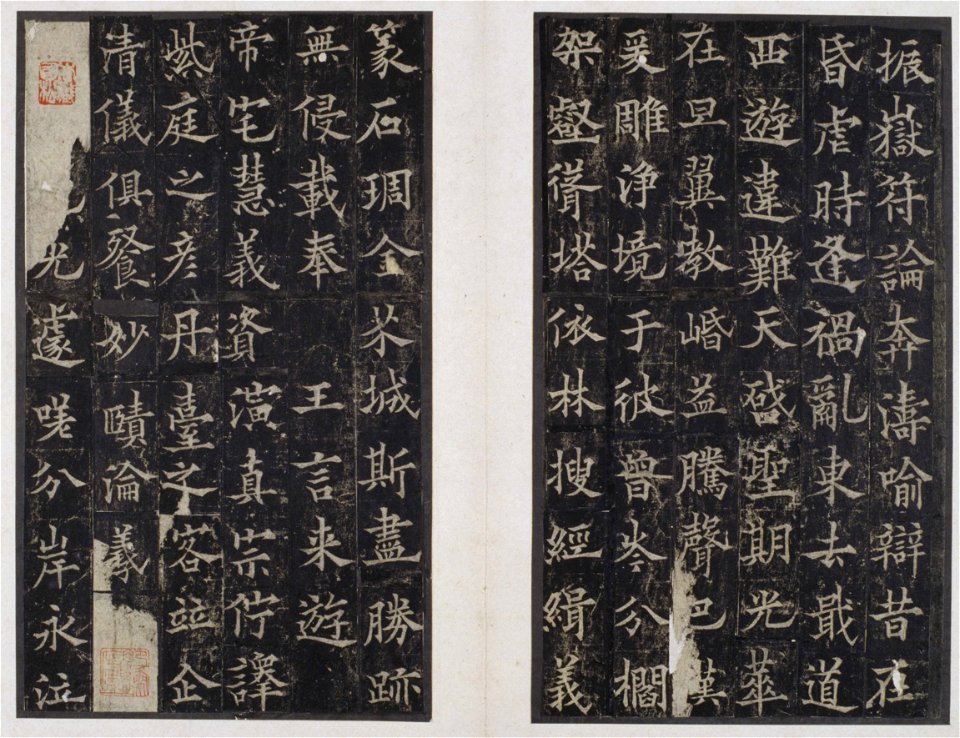 振嶽符論奔濤喻辯昔在
昏虐時逢禍亂東去戢道
西遊違難天啓聖期光華
在旦翼教崤益騰聲巴漢
爰雕浄境于彼曾岑分櫩
架壑聳塔依林搜經緝義
篆石琱金芥城斯盡勝跡
無侵載奉 王言来遊
帝宅慧義資演真宗佇譯
紫庭之彦丹臺之客竝企
清儀俱飡妙賾淪羲
光遽嗟分岸永泣